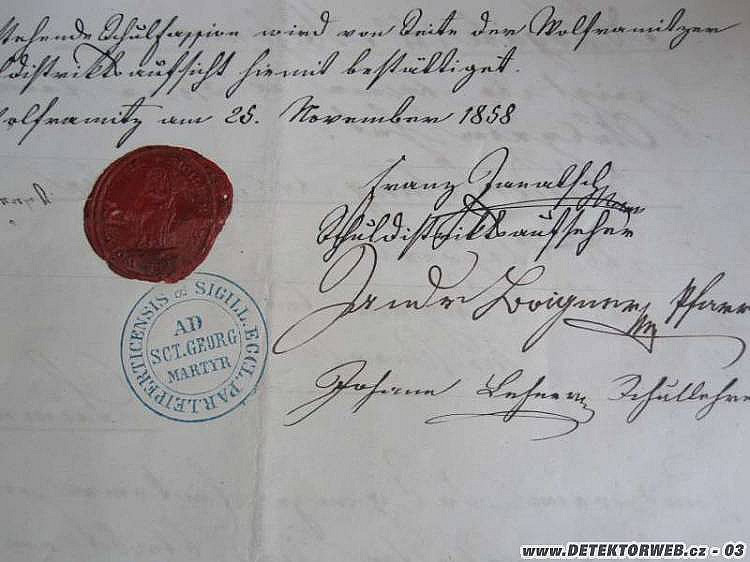 stehende Schulfassion wird von Seite der Wolframitzer
ldistriktsaufsicht hiemit bestättiget.
olframitz am 25. November 1858
Franz
Schuldistriktsaufseher
Pfarr
Johann Schullehre
SIGILL. ECCL. PAR. LEIPERTICENSIS
AD
SCT. GEORG
MARTYR
www.DETEKTORWEB.cz - 03